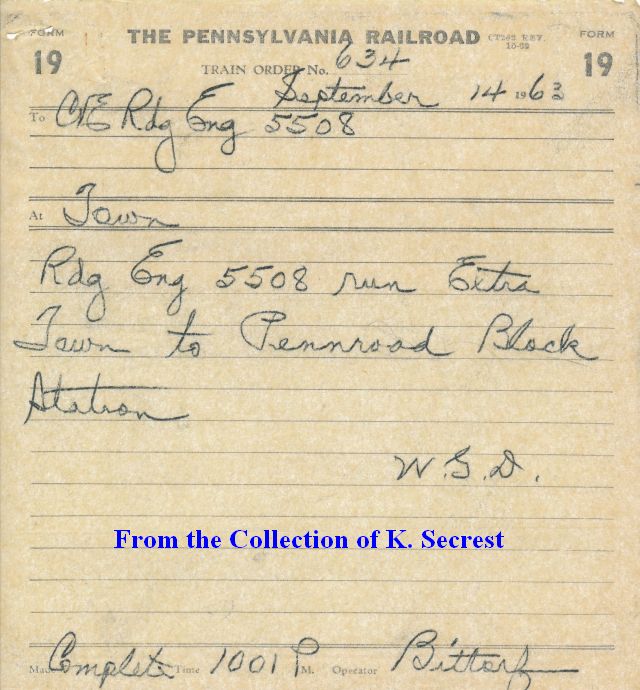 FORM THE PENNSYLVANIA RAILROAD CT263 REV. FORM
19 TRAIN ORDER No. 634 19
September 14 1963
To C&E Rdg Eng 5508
At Town
Rdg Eng 5508 run Extra
Town to Pennroad Block
Station
W.G.D.
From the Collection of K. Secrest
Made Complete Time 1001 P M. Operator